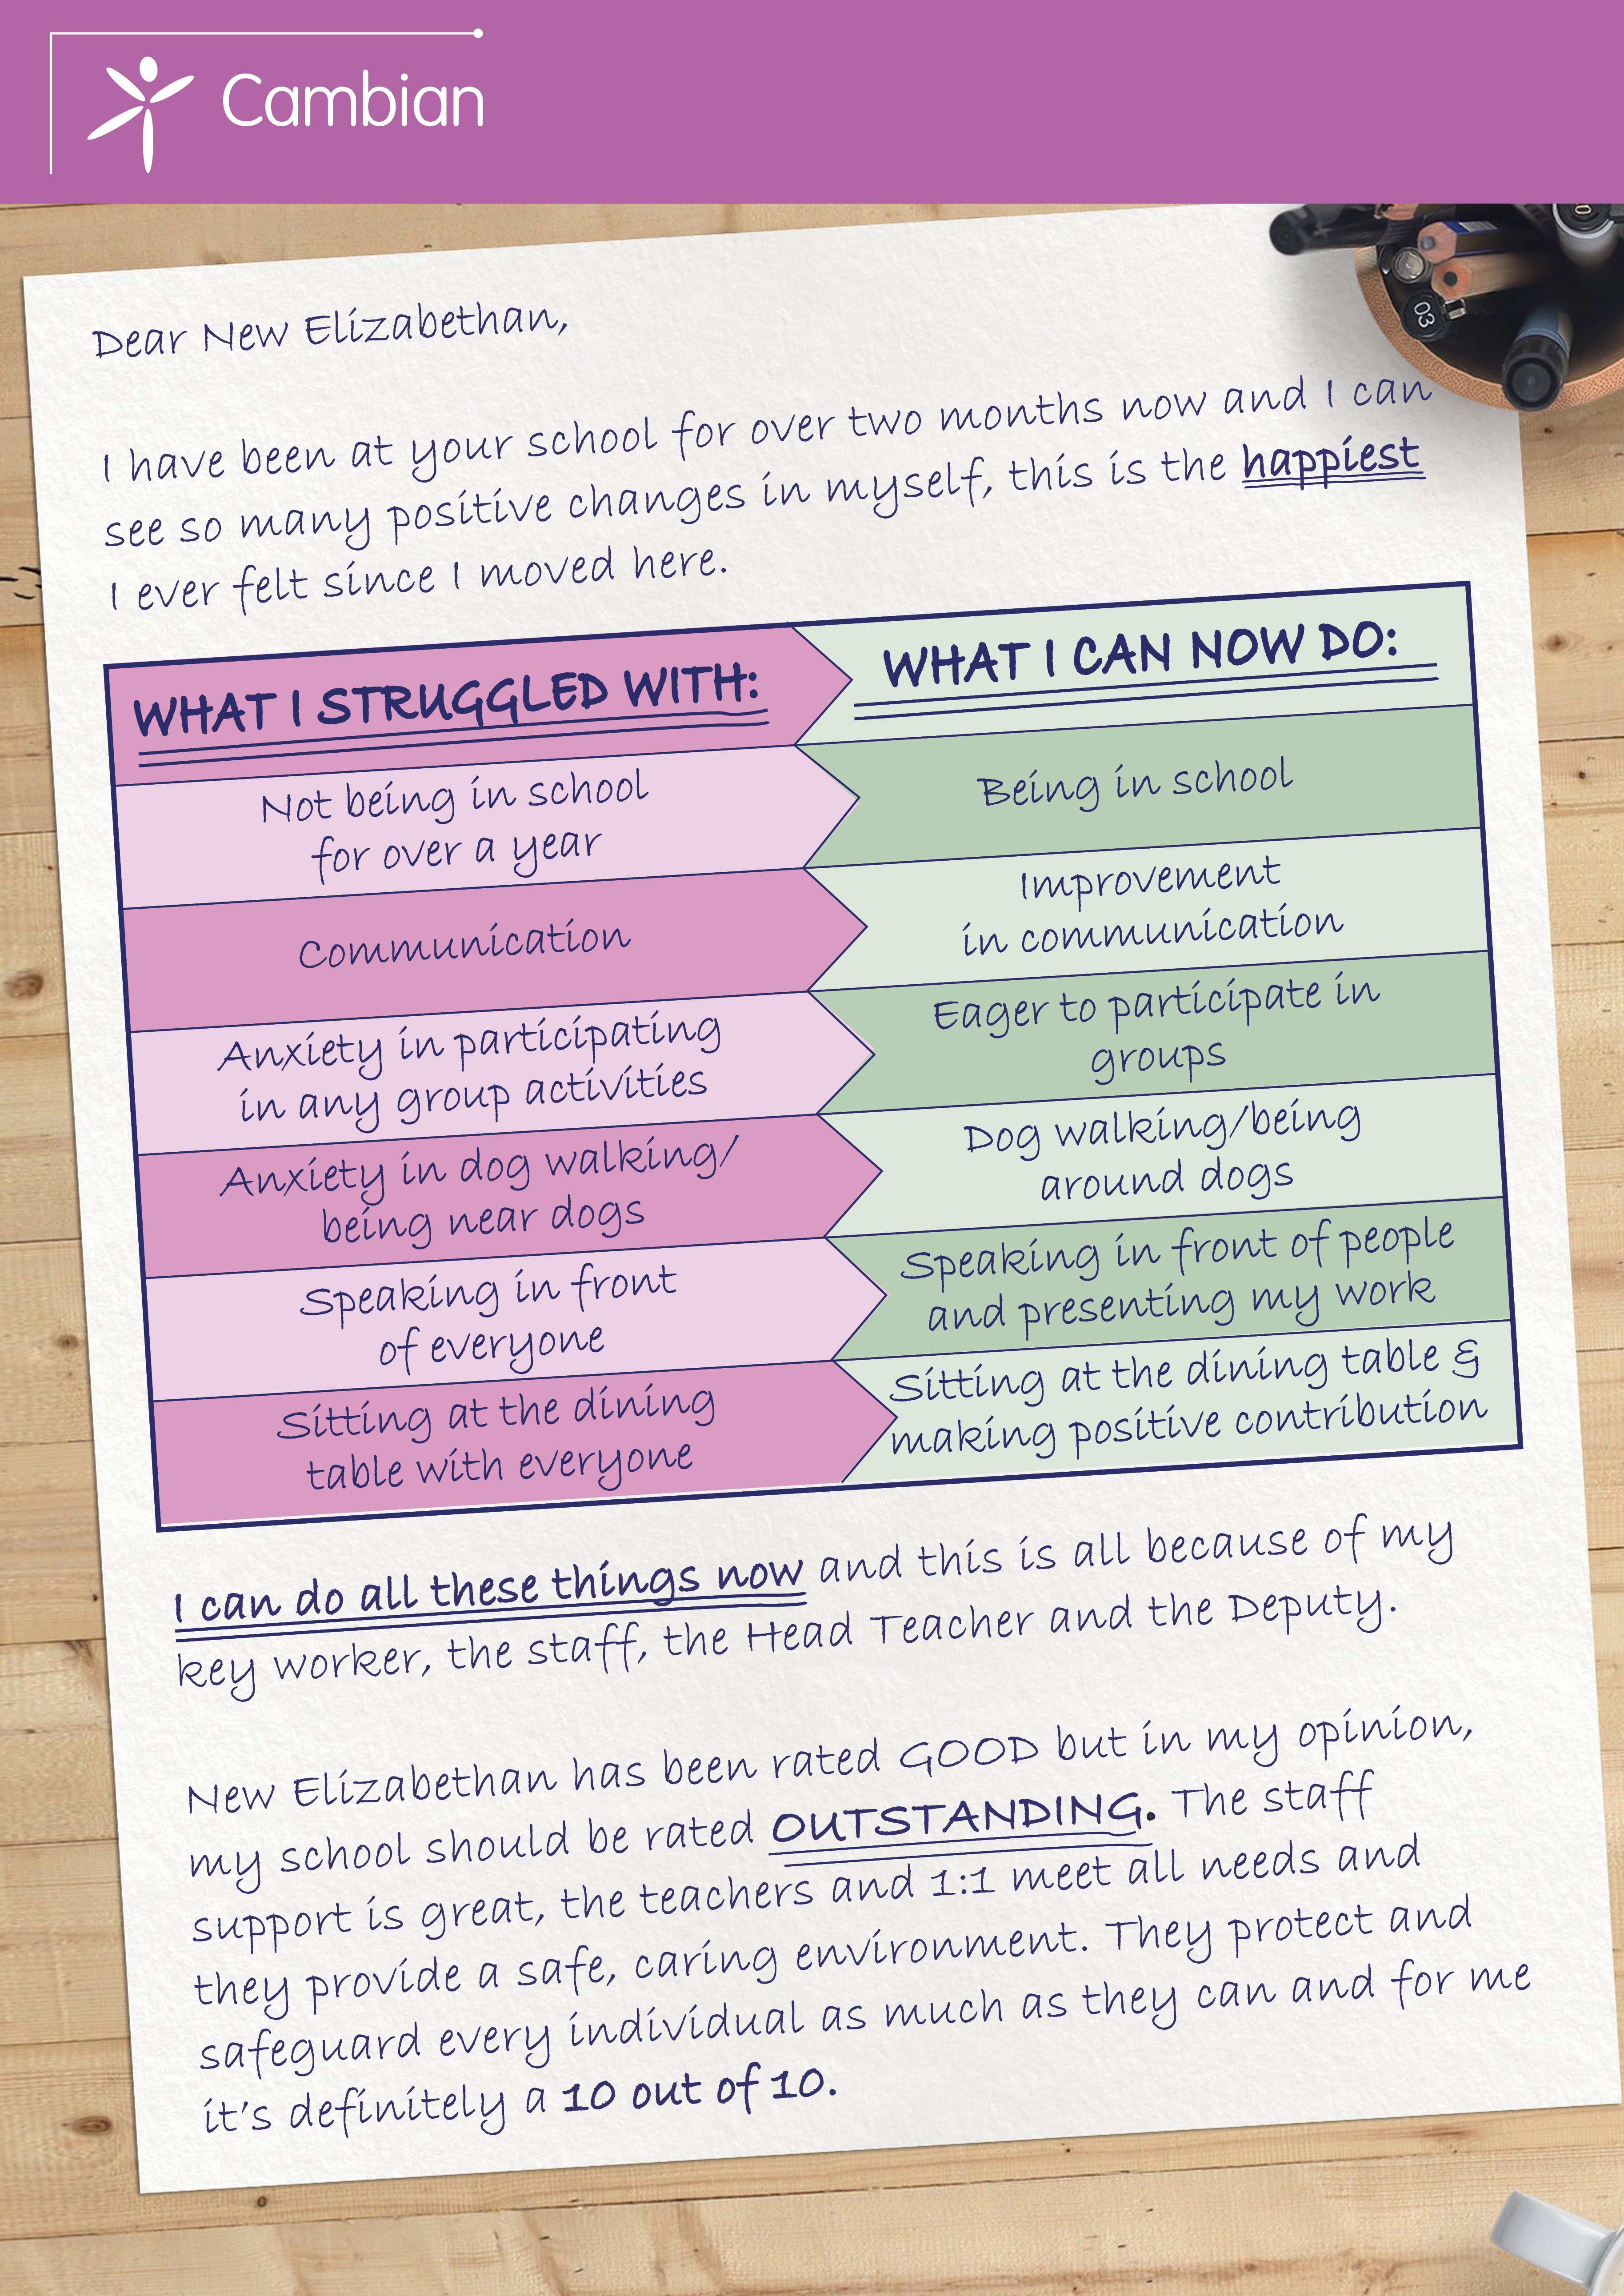 Cambian
03
0
Dear New Elizabethan,
I have been at your school for over two months now and I can
see so many positive changes in myself, this is the happiest
I ever felt since I moved here.
WHAT I STRUGGLED WITH:
WHAT I CAN NOW DO:
Not being in school
for over a year
Being in school
Communication
Improvement
in communication
Anxiety in participating
in any group activities
Eager to participate in
groups
Anxiety in dog walking/
being near dogs
Dog walking/being
around dogs
Speaking in front
of everyone
Speaking in front of people
and presenting my work
Sitting at the dining
table with everyone
Sitting at the dining table &
making positive contribution
I can do all these things now and this is all because of my
key worker, the staff, the Head Teacher and the Deputy.
New Elizabethan has been rated GOOD but in my opinion,
my school should be rated OUTSTANDING. The staff
support is great, the teachers and 1:1 meet all needs and
they provide a safe, caring environment. They protect and
safeguard every individual as much as they can and for me
it's definitely a 10 out of 10.